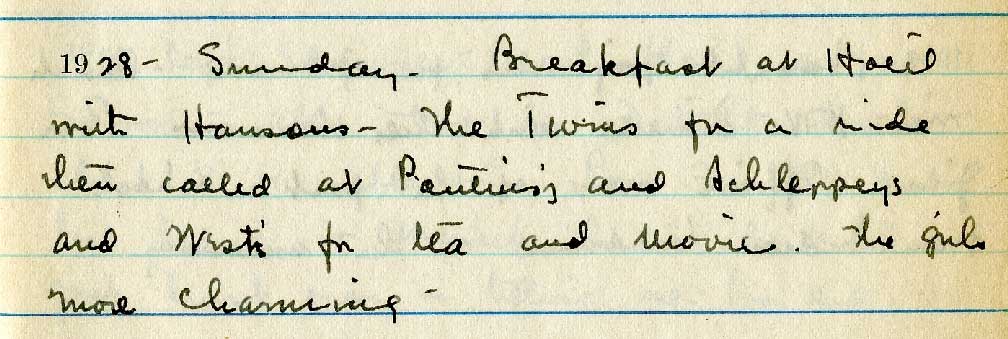 1928 - Sunday - Breakfast at Hotel
with Hansons - The Twins for a ride
then called at and Schleppeys
and West's for tea and Movie. The girls
more charming -